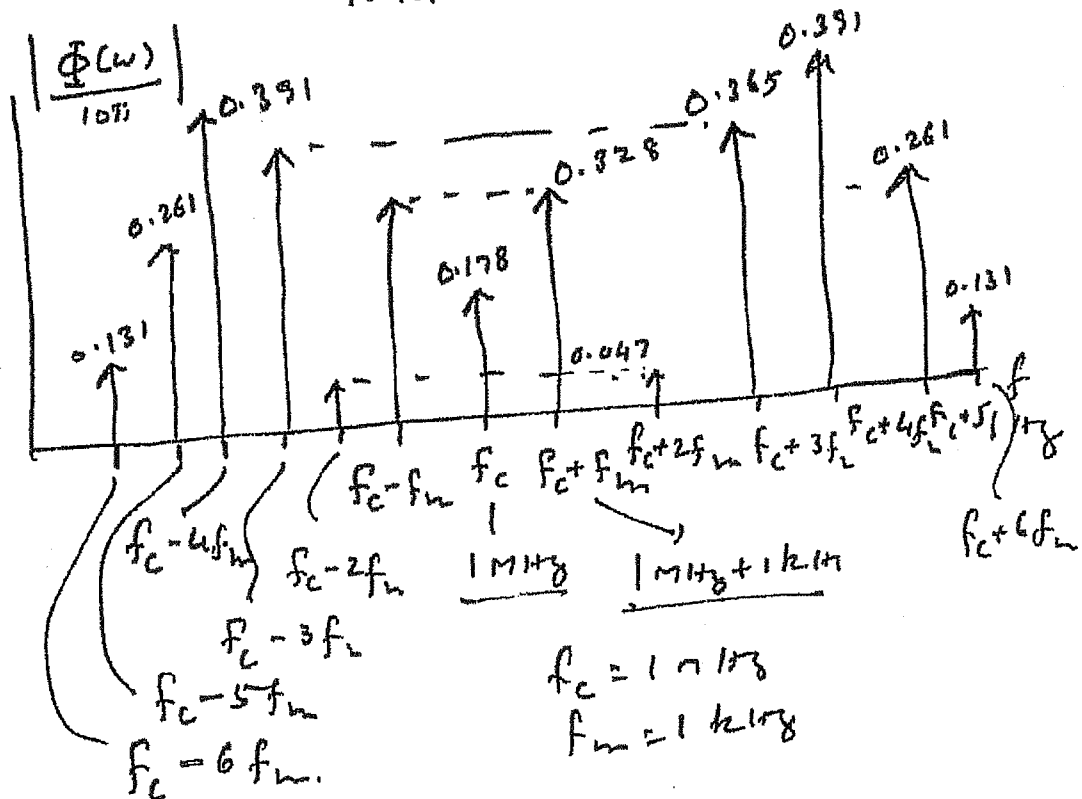 |Φ(ω)/10π|
0.391
0.391
0.365
0.328
0.261
0.261
0.178
0.131
0.131
0.047
f
Hz
f_c - f_m
f_c
f_c + f_m
f_c + 2f_m
f_c + 3f_m
f_c + 4f_m
f_c + 5f_m
f_c + 6f_m
f_c - 4f_m
f_c - 2f_m
1 MHz
1 MHz + 1 kHz
f_c - 3f_m
f_c - 5f_m
f_c - 6f_m.
f_c = 1 MHz
f_m = 1 kHz